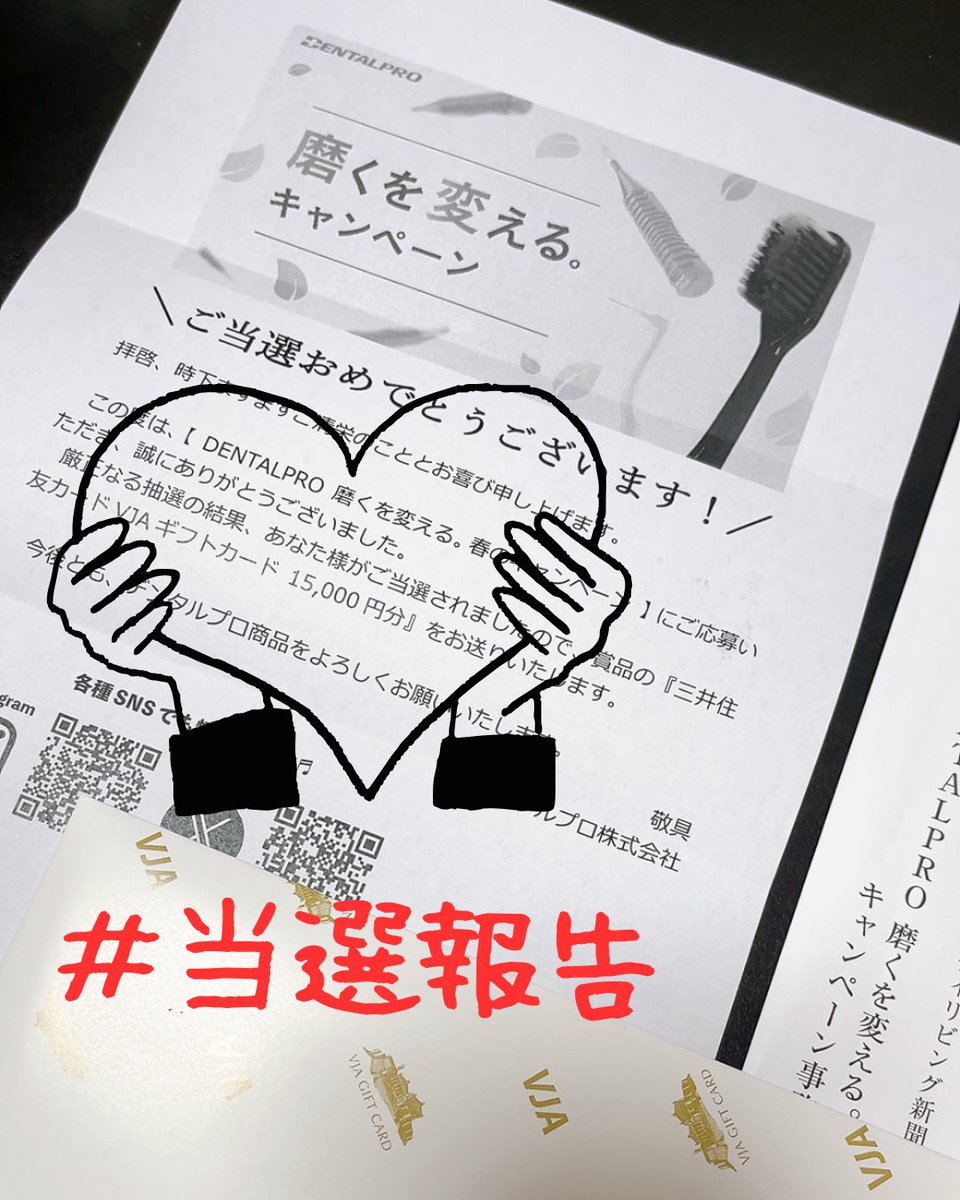 DENTALPRO
磨くを変える。
キャンペーン
\ご当選おめでとうございます！/
拝啓、時下ますますご清栄のこととお喜び申し上げます。
この度は、【 DENTALPRO 磨くを変える。春のキャンペーン 】にご応募い
ただき、誠にありがとうございました。
厳正なる抽選の結果、あなた様がご当選されましたので、賞品の『三井住
友カード VJAギフトカード 15,000円分』をお送りいたします。
今後とも、デンタルプロ商品をよろしくお願いいたします。
敬具
ルプロ株式会社
各種SNSでも
gram
#当選報告
VJA
VJA GIFT CARD
VJA
VJA GIFT CARD
VJA
TALPRO 磨くを変える。
キャンペーン事
イリビング新聞